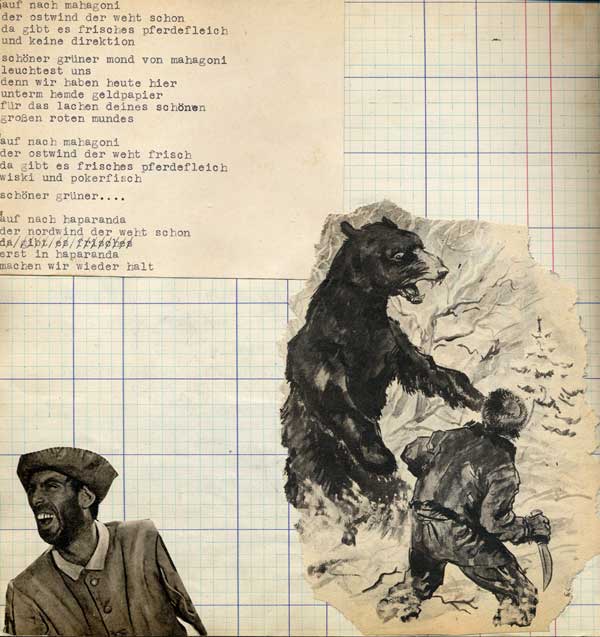 auf nach mahagoni
der ostwind der weht schon
da gibt es frisches pferdefleich
und keine direktion
schöner grüner mond von mahagoni
leuchtest uns
denn wir haben heute hier
unterm hemde geldpapier
für das lachen deines schönen
großen roten mundes
auf nach mahagoni
der ostwind der weht frisch
da gibt es frisches pferdefleich
wiski und pokerfisch
schöner grüner....
auf nach haparanda
der nordwind der weht schon
da/gibt/es/frisches
erst in haparanda
machen wir wieder halt